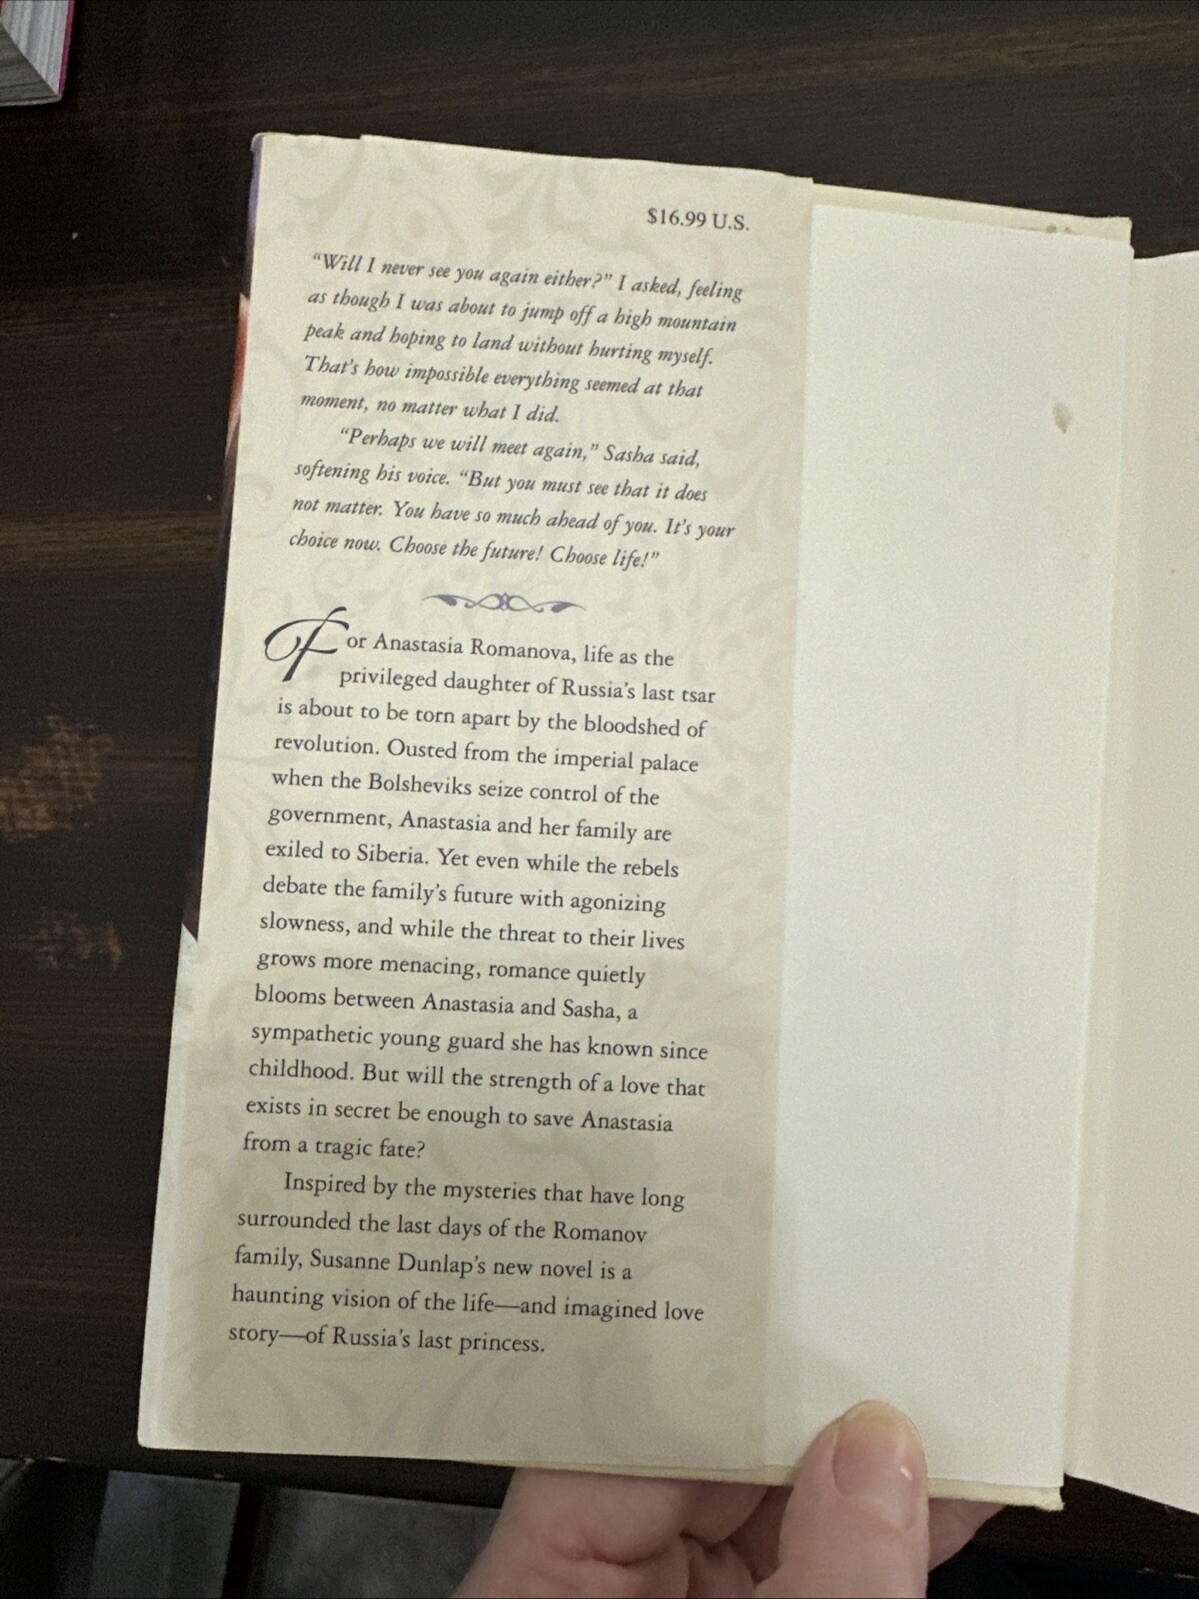 $16.99 U.S.
“Will I never see you again either?” I asked, feeling
as though I was about to jump off a high mountain
peak and hoping to land without hurting myself.
That’s how impossible everything seemed at that
moment, no matter what I did.
“Perhaps we will meet again,” Sasha said,
softening his voice. “But you must see that it does
not matter. You have so much ahead of you. It’s your
choice now. Choose the future! Choose life!”
For Anastasia Romanova, life as the
privileged daughter of Russia’s last tsar
is about to be torn apart by the bloodshed of
revolution. Ousted from the imperial palace
when the Bolsheviks seize control of the
government, Anastasia and her family are
exiled to Siberia. Yet even while the rebels
debate the family’s future with agonizing
slowness, and while the threat to their lives
grows more menacing, romance quietly
blooms between Anastasia and Sasha, a
sympathetic young guard she has known since
childhood. But will the strength of a love that
exists in secret be enough to save Anastasia
from a tragic fate?
Inspired by the mysteries that have long
surrounded the last days of the Romanov
family, Susanne Dunlap’s new novel is a
haunting vision of the life—and imagined love
story—of Russia’s last princess.